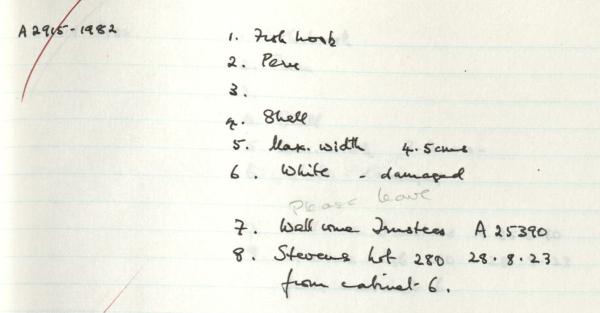 A2915-1982
1. Fish hook
2. Peru
3.
4. Shell
5. Max. width 4.5cms
6. White - damaged
Please leave
7. Wellcome Trustees A 25390
8. Stevens Lot 280 28.8.23
from cabinet 6.